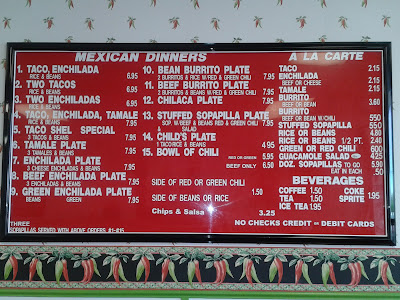 MEXICAN DINNERS
1. TACO, ENCHILADA
RICE & BEANS 6.95
2. TWO TACOS
RICE & BEANS 6.95
3. TWO ENCHILADAS
RICE & BEANS 6.95
4. TACO, ENCHILADA, TAMALE
RICE & BEANS 7.95
5. TACO SHEL SPECIAL
3 TACOS & BEANS 7.95
6. TAMALE PLATE
3 TAMALES & BEANS 7.95
7. ENCHILADA PLATE
3 CHEESE ENCHILADAS & BEANS 7.95
8. BEEF ENCHILADA PLATE
3 ENCHILADAS & BEANS 7.95
9. GREEN ENCHILADA PLATE
BEANS GREEN 7.95
THREE
SOPAPILLAS SERVED WITH ABOVE ORDERS #1-#15
10. BEAN BURRITO PLATE
2 BURRITOS & RICE W/RED & GREEN CHILI 7.95
11. BEEF BURRITO PLATE
2 BURRITOS & BEANS W/RED & GREEN CHILI 7.95
12. CHILACA PLATE 7.95
13. STUFFED SOPAPILLA PLATE
SOP. W/BEEF & BEANS RED & GREEN CHILI 7.95
& SALAD
14. CHILD'S PLATE
1 TACO RICE & BEANS 4.95
15. BOWL OF CHILI
RED OR GREEN 5.95
BEEF ONLY 6.50
SIDE OF RED OR GREEN CHILI 1.50
SIDE OF BEANS OR RICE 1.50
Chips & Salsa 3.25
A LA CARTE
TACO 2.15
ENCHILADA 2.15
BEEF OR CHEESE
TAMALE 2.15
BURRITO 3.60
BEEF OR BEAN
BURRITO
BEEF OR BEAN W/CHILI 5.50
STUFFED SOPAPILLA 5.50
RICE OR BEANS 4.80
RICE OR BEANS 1/2 PT. 2.40
GREEN OR RED CHILI 6.00
GUACAMOLE SALAD 4.25
DOZ. SOPAPILLAS TO GO 5.90
EAT IN EACH .50
BEVERAGES
COFFEE 1.50 COKE
TEA 1.50 SPRITE 1.95
ICE TEA 1.95
NO CHECKS CREDIT OR DEBIT CARDS